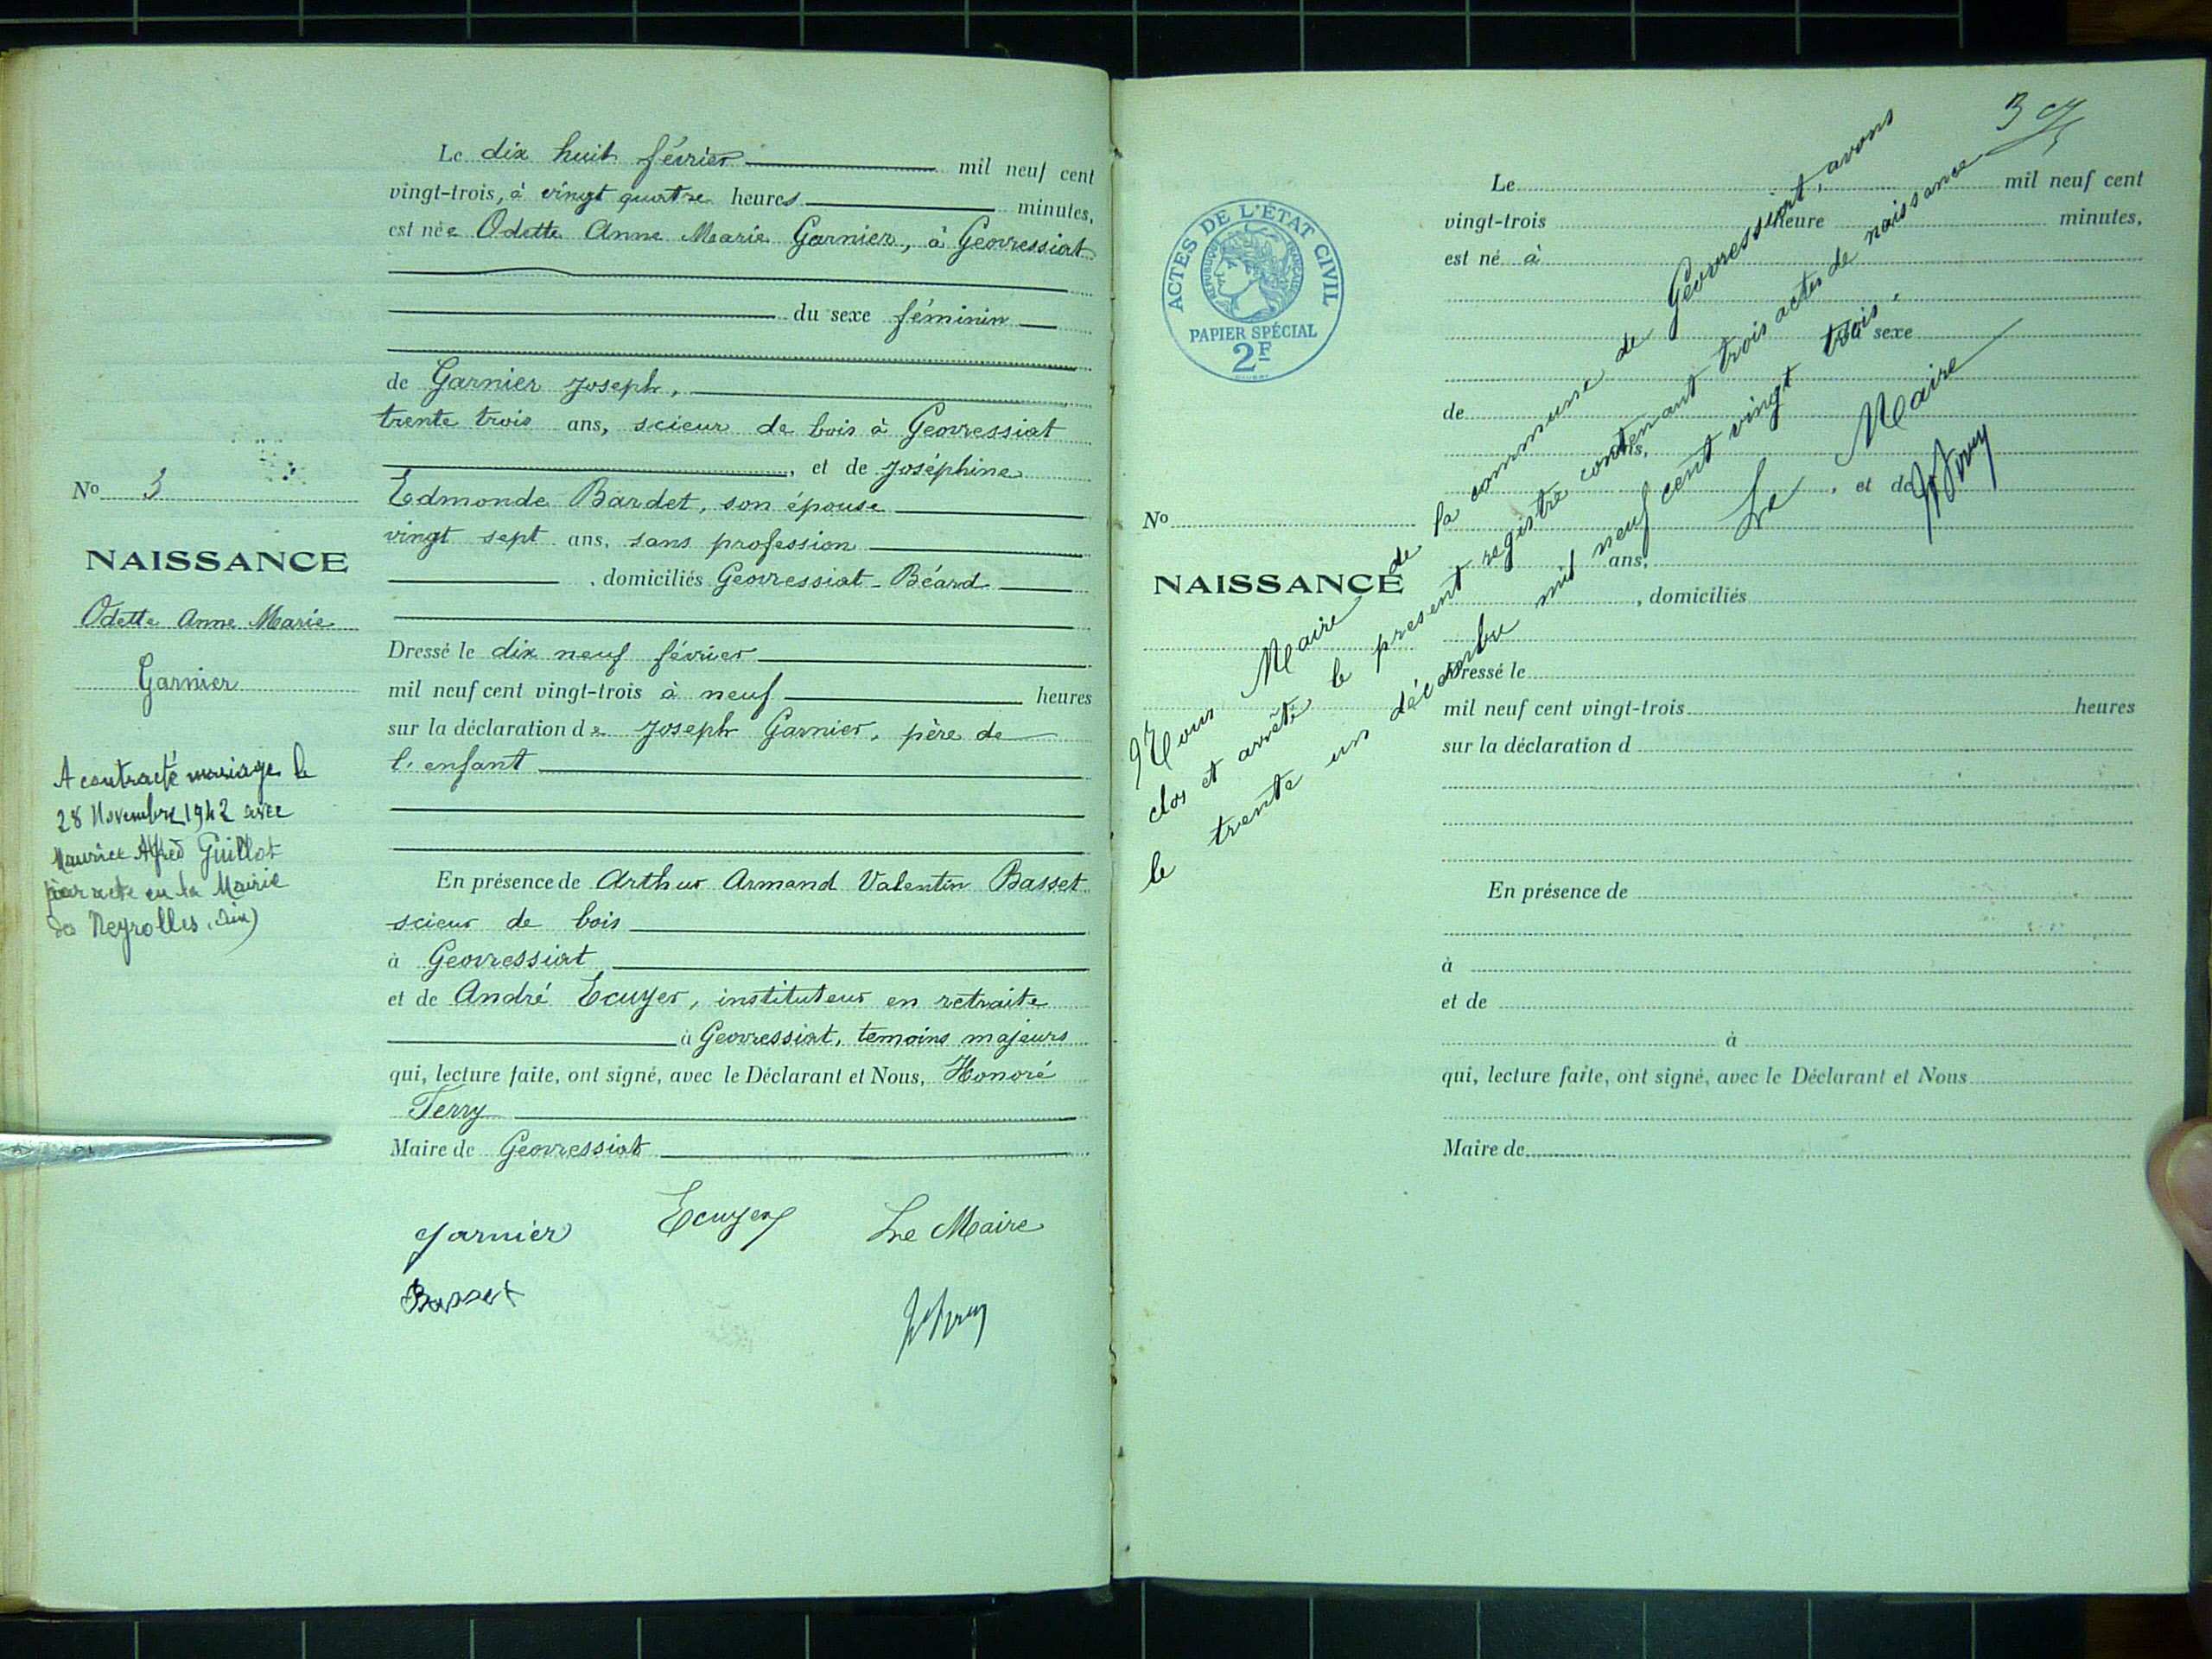 Le dix huit février mil neuf cent
vingt-trois, à vingt quatre heures minutes,
est née Odette Anne Marie Garnier, à Geovressiat
du sexe féminin
de Garnier Joseph,
trente trois ans, scieur de bois à Geovressiat
, et de Joséphine
Edmonde Bardet, son épouse
vingt sept ans, sans profession
, domiciliés Geovressiat - Béard
Dressé le dix neuf février
mil neuf cent vingt-trois à neuf heures
sur la déclaration de Joseph Garnier, père de
l'enfant
En présence de Arthur Armand Valentin Basset
scieur de bois
à Geovressiat
et de André Ecuyer, instituteur en retraite
à Geovressiat, temoins majeurs
qui, lecture faite, ont signé, avec le Déclarant et Nous, Honoré
Terry
Maire de Geovressiat
Garnier Ecuyer Le Maire
Basset
No 3
NAISSANCE
Odette Anne Marie
Garnier
A contracté mariage le
28 Novembre 1942 avec
Maurice Alfred Guillot
par acte en la Mairie
des Neyrolles (Ain)
3
ACTES DE L'ÉTAT CIVIL
RÉPUBLIQUE FRANÇAISE
PAPIER SPÉCIAL
2F
No
NAISSANCE
Le mil neuf cent
vingt-trois heure minutes,
est né à
du sexe
de
ans,
, et de
ans,
, domiciliés
Dressé le
mil neuf cent vingt-trois heures
sur la déclaration d
En présence de
à
et de
à
qui, lecture faite, ont signé, avec le Déclarant et Nous
Maire de
Nous Maire de la commune de Geovressiat, avons
clos et arrêté le present registre contenant trois actes de naissance
le trente un décembre mil neuf cent vingt trois.
Le Maire